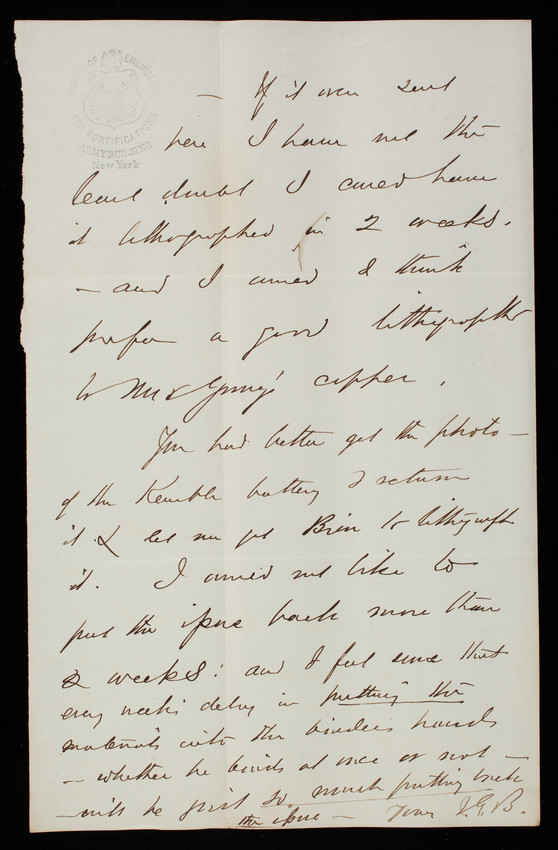 BOARD OF ENGINEERS
FOR FORTIFICATIONS
ARMY BUILDING
New York
— If it were sent
here I have not the
least doubt I could have
it lithographed in 2 weeks.
— and I would I think
prefer a good lithograph
to copper.
You had better get the photo —
of the Kemble battery & return
it & let me get Bien to lithograph
it. I would not like to
put the issue back more than
2 weeks: and I feel sure that
every week's delay in putting the
materials into the binder's hands
— whether he binds at once or not —
— will be just so much putting back
the issue — Yours